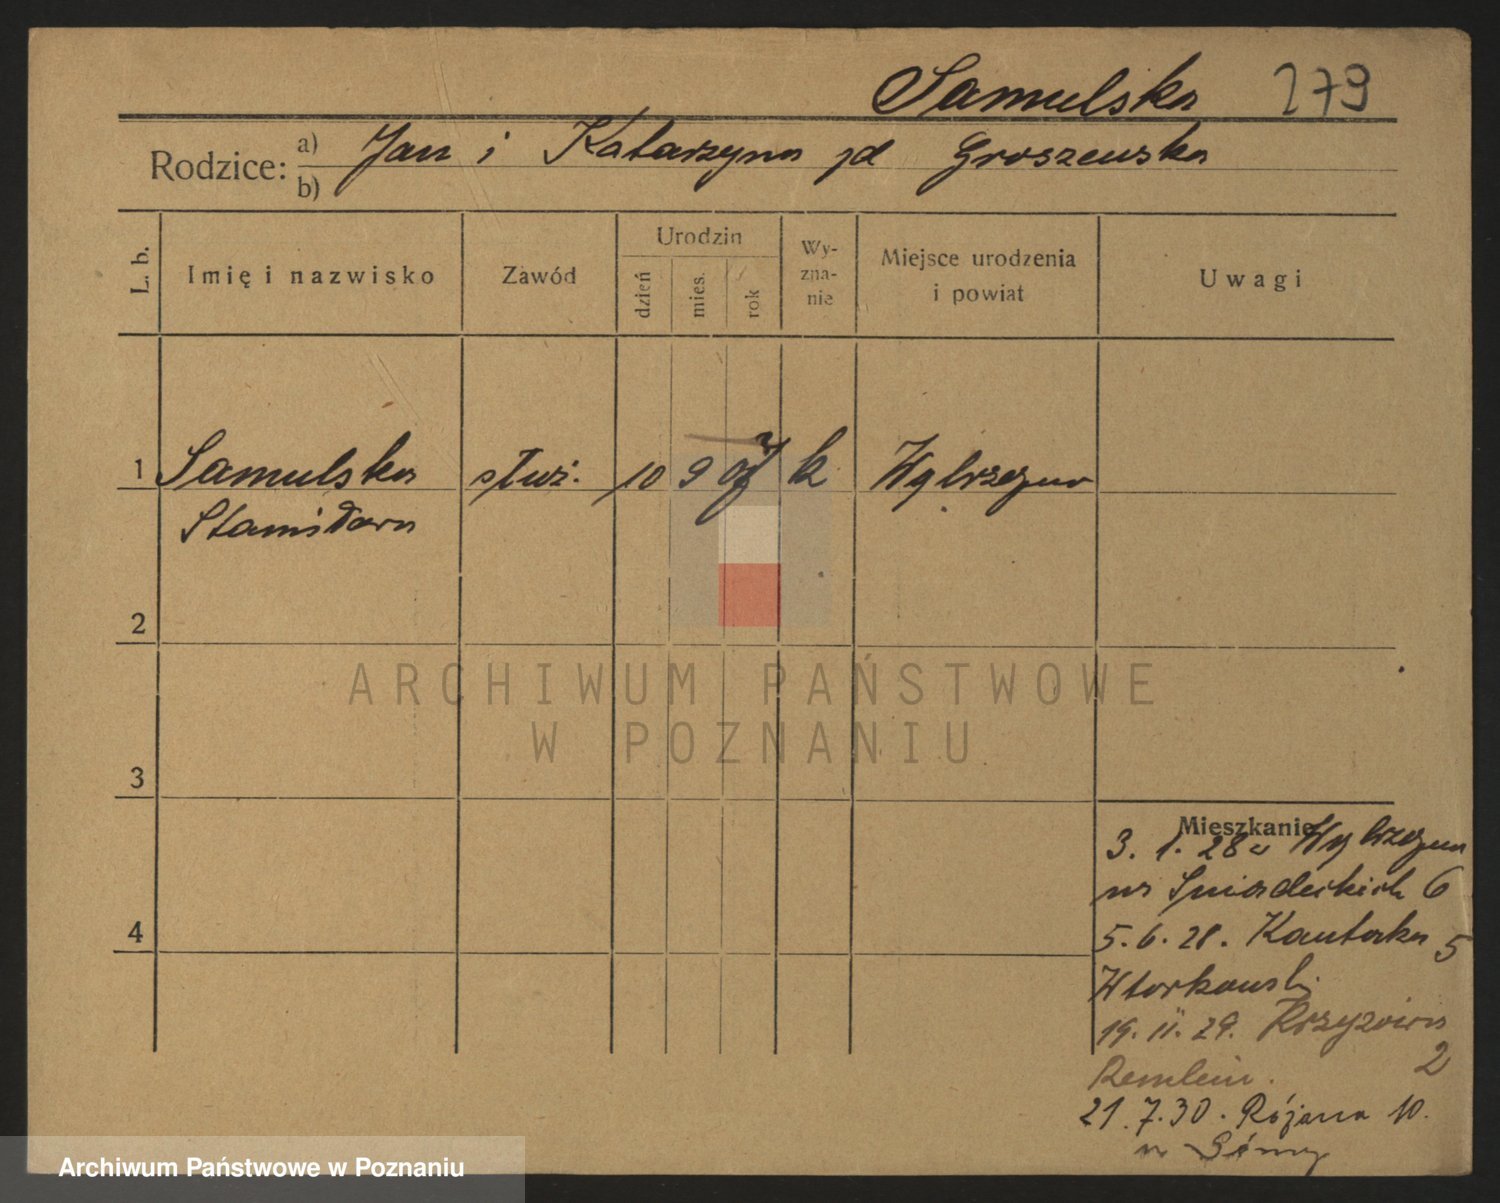 Samulska 279
Rodzice: a) Jan i Katarzyna zd Groszewska
b)
L. b.
Imię i nazwisko
Zawód
Urodzin
dzień
mies.
rok
Wy-
zna-
nie
Miejsce urodzenia
i powiat
Uwagi
1 Samulska służ. 10 9 k Wąbrzezno
Stanisława
2
3
4
Mieszkanie
3. 1. 28 Wąbrzezno
na Sniadeckich 6
5. 6. 28. Kantaka 5
Wtorkowski
19. II. 29. Krzyzowa
Remlein. 2
21. 7. 30. Różana 10.
ARCHIWUM PAŃSTWOWE
W POZNANIU
Archiwum Państwowe w Poznaniu